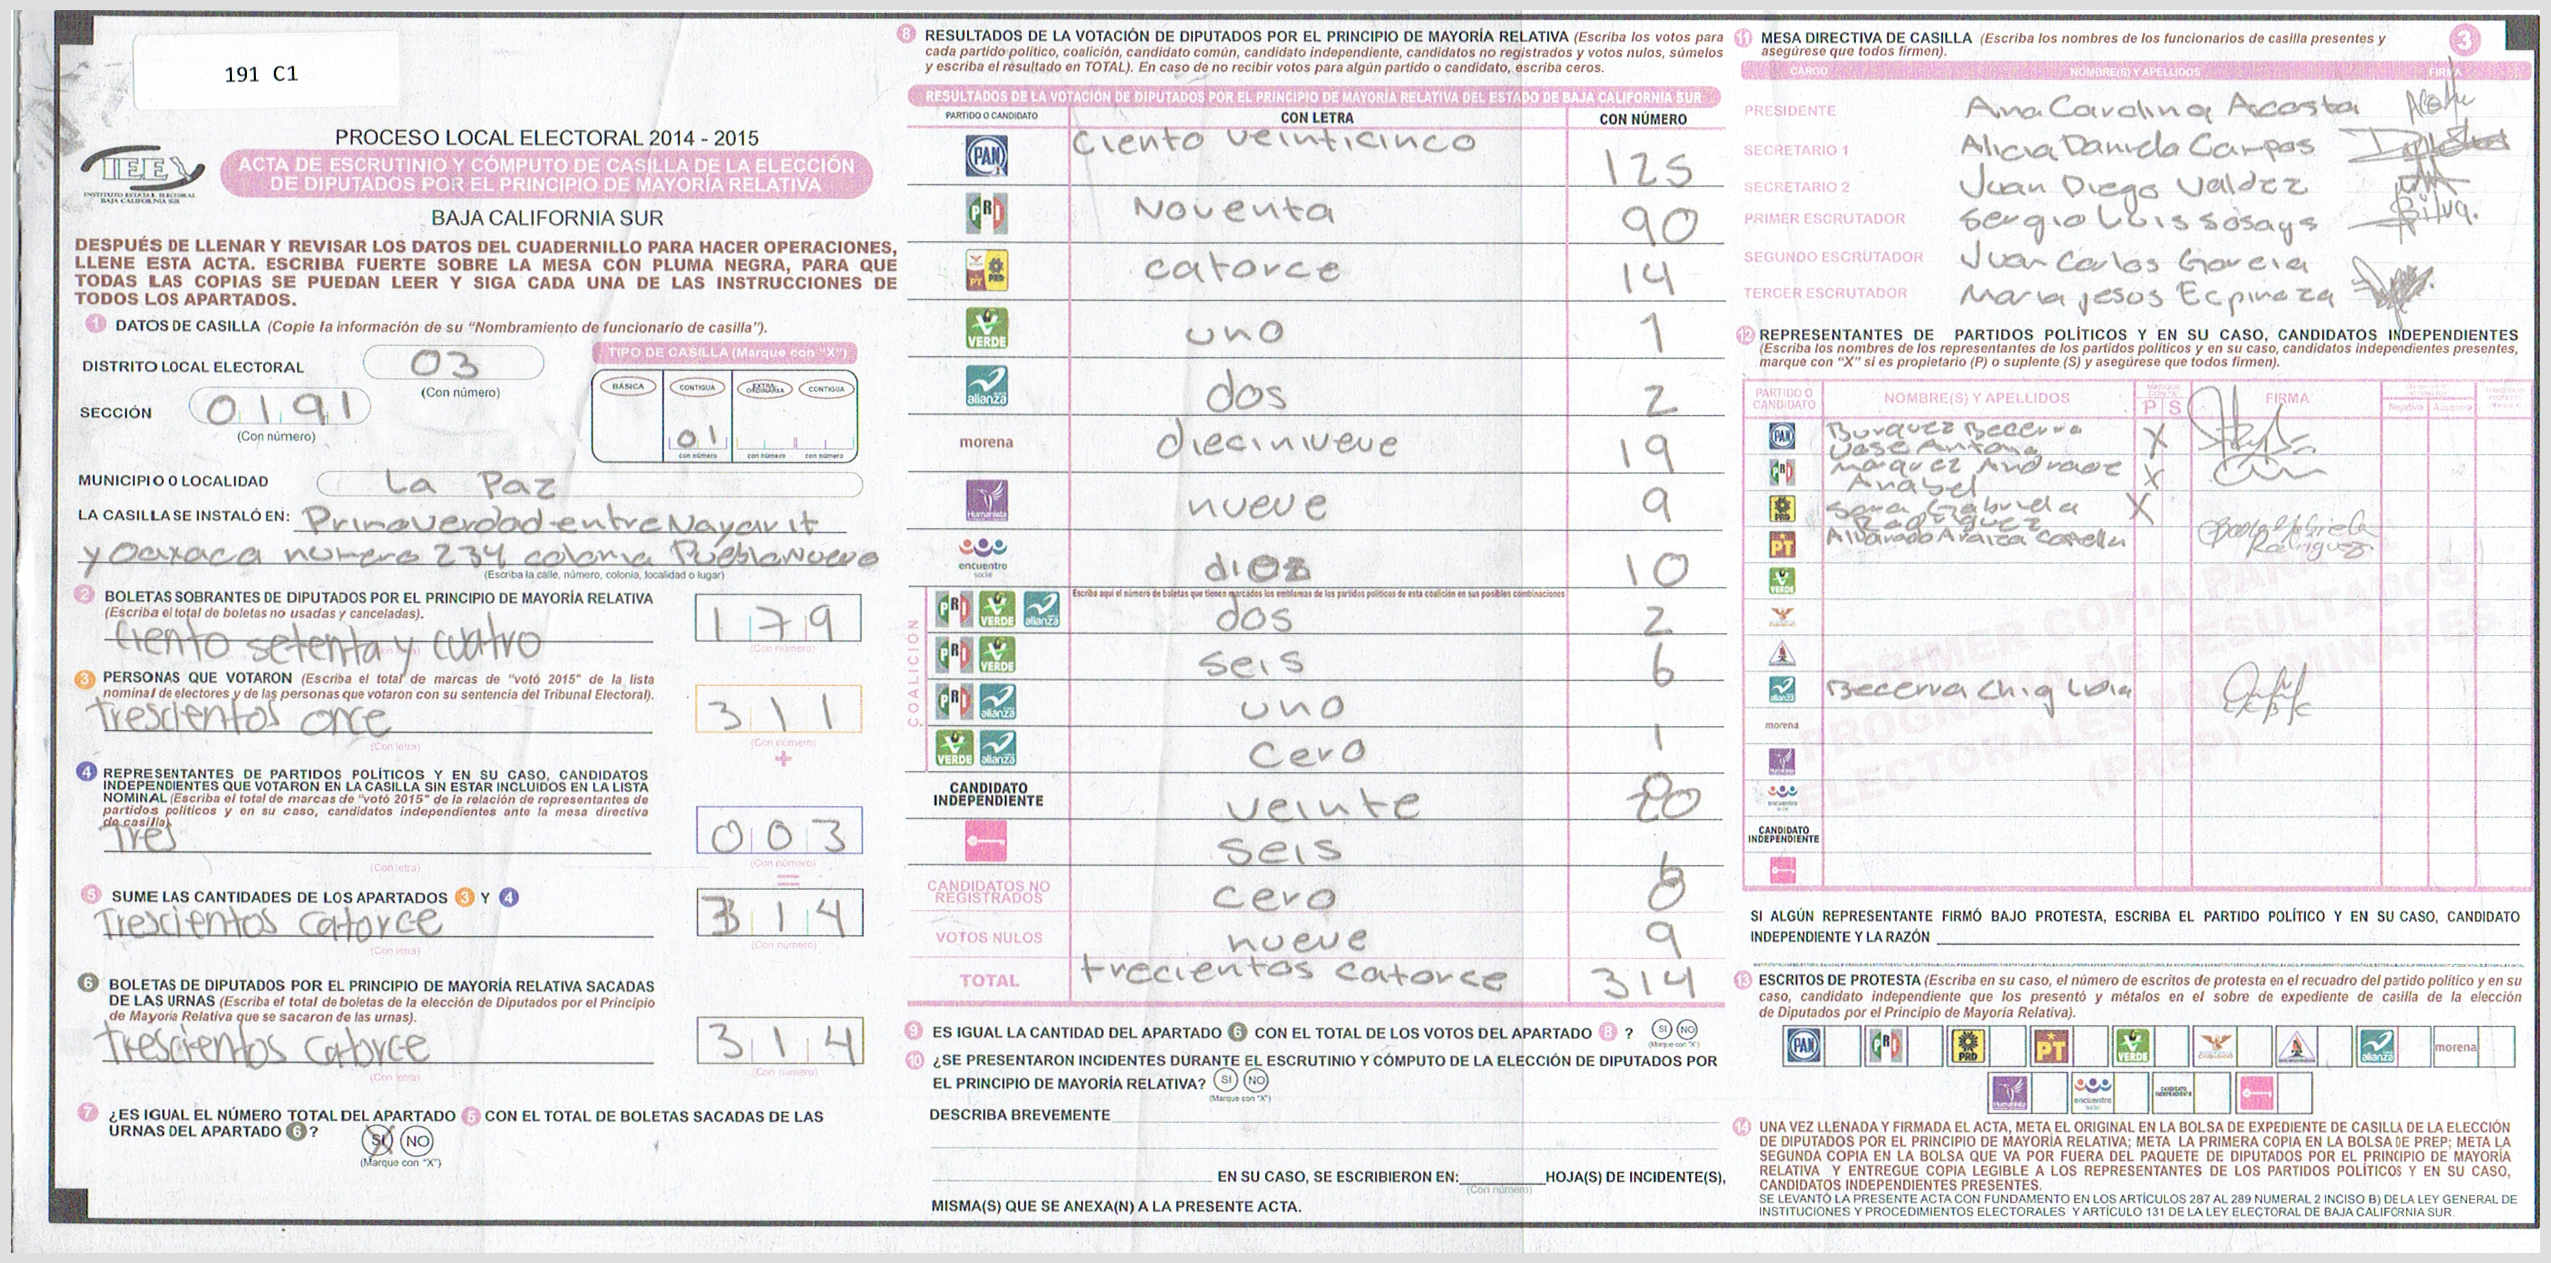 191 C1
IEE
INSTITUTO ESTATAL ELECTORAL
BAJA CALIFORNIA SUR
PROCESO LOCAL ELECTORAL 2014 - 2015
ACTA DE ESCRUTINIO Y CÓMPUTO DE CASILLA DE LA ELECCIÓN
DE DIPUTADOS POR EL PRINCIPIO DE MAYORÍA RELATIVA
BAJA CALIFORNIA SUR
DESPUÉS DE LLENAR Y REVISAR LOS DATOS DEL CUADERNILLO PARA HACER OPERACIONES,
LLENE ESTA ACTA. ESCRIBA FUERTE SOBRE LA MESA CON PLUMA NEGRA, PARA QUE
TODAS LAS COPIAS SE PUEDAN LEER Y SIGA CADA UNA DE LAS INSTRUCCIONES DE
TODOS LOS APARTADOS.
1 DATOS DE CASILLA (Copie la información de su "Nombramiento de funcionario de casilla").
DISTRITO LOCAL ELECTORAL 03
(Con número)
SECCIÓN 0191
(Con número)
TIPO DE CASILLA (Marque con "X")
BÁSICA CONTIGUA EXTRAORDINARIA CONTIGUA
01
con número con número con número
MUNICIPIO O LOCALIDAD La Paz
LA CASILLA SE INSTALÓ EN: Primoverdad entre Nayarit
y Oaxaca numero 234 colonia Pueblo Nuevo
(Escriba la calle, número, colonia, localidad o lugar)
2 BOLETAS SOBRANTES DE DIPUTADOS POR EL PRINCIPIO DE MAYORÍA RELATIVA
(Escriba el total de boletas no usadas y canceladas).
ciento setenta y cuatro 179
(Con número)
3 PERSONAS QUE VOTARON (Escriba el total de marcas de "votó 2015" de la lista
nominal de electores y de las personas que votaron con su sentencia del Tribunal Electoral).
Trescientos once 311
(Con letra) (Con número)
+
4 REPRESENTANTES DE PARTIDOS POLÍTICOS Y EN SU CASO, CANDIDATOS
INDEPENDIENTES QUE VOTARON EN LA CASILLA SIN ESTAR INCLUIDOS EN LA LISTA
NOMINAL (Escriba el total de marcas de "votó 2015" de la relación de representantes de
partidos políticos y en su caso, candidatos independientes ante la mesa directiva
de casilla).
Tres 003
(Con letra) (Con número)
=
5 SUME LAS CANTIDADES DE LOS APARTADOS 3 Y 4
Trescientos catorce 314
(Con letra) (Con número)
6 BOLETAS DE DIPUTADOS POR EL PRINCIPIO DE MAYORÍA RELATIVA SACADAS
DE LAS URNAS (Escriba el total de boletas de la elección de Diputados por el Principio
de Mayoría Relativa que se sacaron de las urnas).
Trescientos catorce 314
(Con letra) (Con número)
7 ¿ES IGUAL EL NÚMERO TOTAL DEL APARTADO 5 CON EL TOTAL DE BOLETAS SACADAS DE LAS
URNAS DEL APARTADO 6? SI NO
(Marque con "X")
8 RESULTADOS DE LA VOTACIÓN DE DIPUTADOS POR EL PRINCIPIO DE MAYORÍA RELATIVA (Escriba los votos para
cada partido político, coalición, candidato común, candidato independiente, candidatos no registrados y votos nulos, súmelos
y escriba el resultado en TOTAL). En caso de no recibir votos para algún partido o candidato, escriba ceros.
RESULTADOS DE LA VOTACIÓN DE DIPUTADOS POR EL PRINCIPIO DE MAYORÍA RELATIVA DEL ESTADO DE BAJA CALIFORNIA SUR
PARTIDO O CANDIDATO CON LETRA CON NÚMERO
PAN ciento veinticinco 125
PRI Noventa 90
PT PRD catorce 14
VERDE uno 1
alianza dos 2
morena diecinueve 19
Humanista nueve 9
encuentro social diez 10
COALICIÓN
Escriba aquí el número de boletas que tienen marcados los emblemas de los partidos políticos de esta coalición en sus posibles combinaciones
PRI VERDE alianza dos 2
PRI VERDE seis 6
PRI alianza uno 1
VERDE alianza cero
CANDIDATO
INDEPENDIENTE veinte 20
seis 6
CANDIDATOS NO
REGISTRADOS cero 0
VOTOS NULOS nueve 9
TOTAL trecientos catorce 314
9 ES IGUAL LA CANTIDAD DEL APARTADO 6 CON EL TOTAL DE LOS VOTOS DEL APARTADO 8 ? SI NO
(Marque con "X")
10 ¿SE PRESENTARON INCIDENTES DURANTE EL ESCRUTINIO Y CÓMPUTO DE LA ELECCIÓN DE DIPUTADOS POR
EL PRINCIPIO DE MAYORÍA RELATIVA? SI NO
(Marque con "X")
DESCRIBA BREVEMENTE
EN SU CASO, SE ESCRIBIERON EN: HOJA(S) DE INCIDENTE(S),
(Con número)
MISMA(S) QUE SE ANEXA(N) A LA PRESENTE ACTA.
11 MESA DIRECTIVA DE CASILLA (Escriba los nombres de los funcionarios de casilla presentes y
asegúrese que todos firmen).
3
CARGO NOMBRE(S) Y APELLIDOS FIRMA
PRESIDENTE Ana Carolina Acosta
SECRETARIO 1 Alicia Daniela Campos
SECRETARIO 2 Juan Diego Valdez
PRIMER ESCRUTADOR Sergio Luis Sosaya
SEGUNDO ESCRUTADOR Juan Carlos Garcia
TERCER ESCRUTADOR Maria Jesos Espinoza
12 REPRESENTANTES DE PARTIDOS POLÍTICOS Y EN SU CASO, CANDIDATOS INDEPENDIENTES
(Escriba los nombres de los representantes de los partidos políticos y en su caso, candidatos independientes presentes,
marque con "X" si es propietario (P) o suplente (S) y asegúrese que todos firmen).
PARTIDO O
CANDIDATO NOMBRE(S) Y APELLIDOS P S FIRMA
PAN Burquez Becerra X
Jose Antonio
PRI Marquez Andrade X
Anabel
PRD Sara Gabriela X
Rodriguez
PT Alvarado Araiza
VERDE
alianza Becerra Chig Lidia
morena
Humanista
encuentro social
CANDIDATO
INDEPENDIENTE
PRIMER COPIA PARA
PROGRAMA DE RESULTADOS
ELECTORALES PRELIMINARES
(PREP)
SI ALGÚN REPRESENTANTE FIRMÓ BAJO PROTESTA, ESCRIBA EL PARTIDO POLÍTICO Y EN SU CASO, CANDIDATO
INDEPENDIENTE Y LA RAZÓN
13 ESCRITOS DE PROTESTA (Escriba en su caso, el número de escritos de protesta en el recuadro del partido político y en su
caso, candidato independiente que los presentó y métalos en el sobre de expediente de casilla de la elección
de Diputados por el Principio de Mayoría Relativa).
PAN PRI PRD PT VERDE alianza morena
Humanista encuentro social CANDIDATO INDEPENDIENTE
14 UNA VEZ LLENADA Y FIRMADA EL ACTA, META EL ORIGINAL EN LA BOLSA DE EXPEDIENTE DE CASILLA DE LA ELECCIÓN
DE DIPUTADOS POR EL PRINCIPIO DE MAYORÍA RELATIVA; META LA PRIMERA COPIA EN LA BOLSA DE PREP; META LA
SEGUNDA COPIA EN LA BOLSA QUE VA POR FUERA DEL PAQUETE DE DIPUTADOS POR EL PRINCIPIO DE MAYORÍA
RELATIVA Y ENTREGUE COPIA LEGIBLE A LOS REPRESENTANTES DE LOS PARTIDOS POLÍTICOS Y EN SU CASO,
CANDIDATOS INDEPENDIENTES PRESENTES.
SE LEVANTÓ LA PRESENTE ACTA CON FUNDAMENTO EN LOS ARTÍCULOS 287 AL 289 NUMERAL 2 INCISO B) DE LA LEY GENERAL DE
INSTITUCIONES Y PROCEDIMIENTOS ELECTORALES Y ARTÍCULO 131 DE LA LEY ELECTORAL DE BAJA CALIFORNIA SUR.